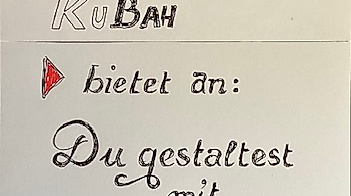 KuBAH
bietet an:
Du gestaltest
mit